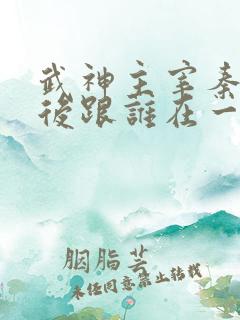 武神主宰秦
後跟誰在一
胭脂芸
未经同意禁止转载